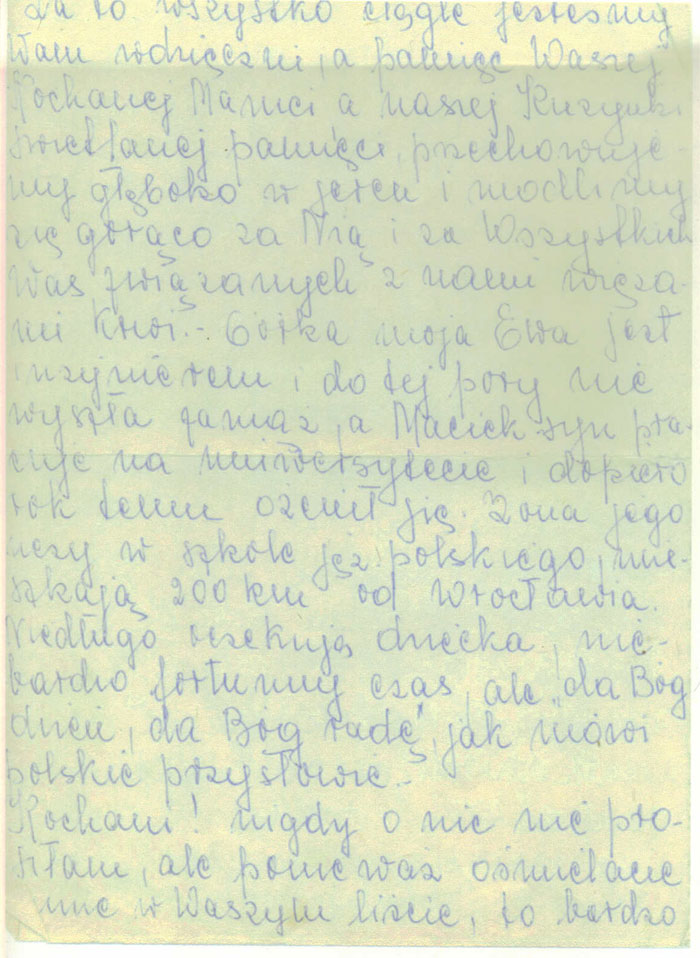 Za to wszystko ciągle jesteśmy
Wam wdzięczni, a pamięć Waszej
Kochanej Mamci a naszej Kuzynki
świetlanej pamięci, przechowuje-
my głęboko w sercu i modlimy
się gorąco za Nią i za Wszystkich
Was związanych z nami więza-
mi krwi.- Córka moja Ewa jest
inżynierem i do tej pory nie
wyszła zamąż, a Maciek syn pra-
cuje na uniwersytecie i dopiero
rok temu ożenił się. Żona jego
uczy w szkole jęz. polskiego, mie-
szkają 200 km od Wrocławia.
Niedługo oczekują dziecka, nie-
bardzo fortunny czas, ale "da Bóg
dzieci, da Bóg radę", jak mówi
polskie przysłowie.-
Kochani! nigdy o nic nie pro-
siłam, ale ponieważ ośmielacie
mnie w Waszym liście, to bardzo